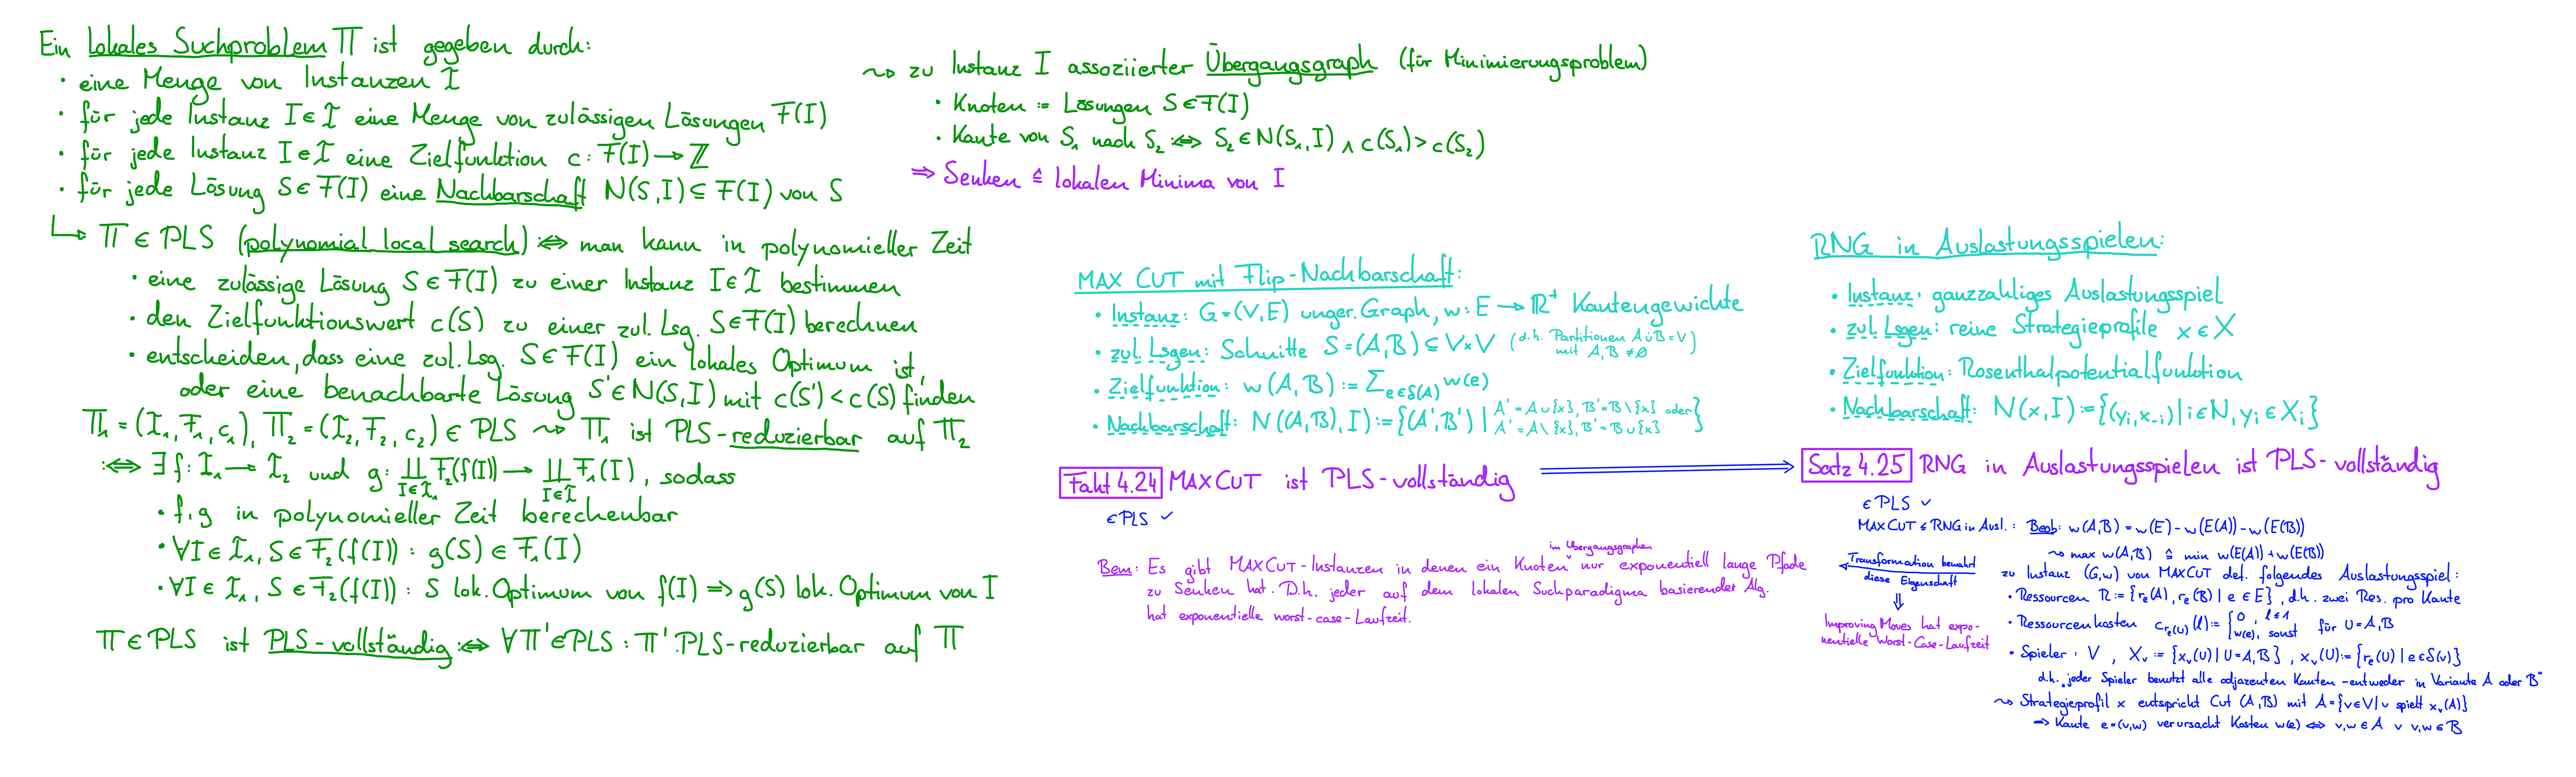 Ein lokales Suchproblem Π ist gegeben durch:
• eine Menge von Instanzen 𝓘
• für jede Instanz I ∈ 𝓘 eine Menge von zulässigen Lösungen F(I)
• für jede Instanz I ∈ 𝓘 eine Zielfunktion c: F(I) → ℤ
• für jede Lösung S ∈ F(I) eine Nachbarschaft N(S,I) ⊆ F(I) von S
↳ Π ∈ PLS (polynomial local search) :⇔ man kann in polynomieller Zeit
• eine zulässige Lösung S ∈ F(I) zu einer Instanz I ∈ 𝓘 bestimmen
• den Zielfunktionswert c(S) zu einer zul. Lsg. S ∈ F(I) berechnen
• entscheiden, dass eine zul. Lsg. S ∈ F(I) ein lokales Optimum ist,
oder eine benachbarte Lösung S' ∈ N(S,I) mit c(S') < c(S) finden
Π₁ = (𝓘₁, F₁, c₁), Π₂ = (𝓘₂, F₂, c₂) ∈ PLS ⇝ Π₁ ist PLS-reduzierbar auf Π₂
:⇔ ∃ f: 𝓘₁ → 𝓘₂ und g: ∐_{I∈𝓘₁} F₂(f(I)) → ∐_{I∈𝓘} F₁(I), sodass
• f, g in polynomieller Zeit berechenbar
• ∀I ∈ 𝓘₁, S ∈ F₂(f(I)) : g(S) ∈ F₁(I)
• ∀I ∈ 𝓘₁, S ∈ F₂(f(I)) : S lok. Optimum von f(I) ⇒ g(S) lok. Optimum von I
Π ∈ PLS ist PLS-vollständig :⇔ ∀Π' ∈ PLS : Π' PLS-reduzierbar auf Π
⇝ zu Instanz I assoziierter Übergangsgraph (für Minimierungsproblem)
• Knoten := Lösungen S ∈ F(I)
• Kante von S₁ nach S₂ :⇔ S₂ ∈ N(S₁,I) ∧ c(S₁) > c(S₂)
⇒ Senken ≙ lokalen Minima von I
MAX CUT mit Flip-Nachbarschaft:
• Instanz: G=(V,E) unger. Graph, w: E → ℝ⁺ Kantengewichte
• zul. Lsgen: Schnitte S=(A,B) ⊆ V×V (d.h. Partitionen A∪̇B=V
mit A,B ≠ ∅)
• Zielfunktion: w(A,B) := Σ_{e∈δ(A)} w(e)
• Nachbarschaft: N((A,B),I) := {(A',B') | A'=A∪{x}, B'=B\{x} oder
A'=A\{x}, B'=B∪{x}}
Fakt 4.24 MAXCUT ist PLS-vollständig
∈ PLS ✓
im Übergangsgraphen
Bem: Es gibt MAXCUT-Instanzen in denen ein Knoten nur exponentiell lange Pfade
zu Senken hat. D.h. jeder auf dem lokalen Suchparadigma basierender Alg.
hat exponentielle worst-case-Laufzeit.
RNG in Auslastungsspielen:
• Instanz: ganzzahliges Auslastungsspiel
• zul. Lsgen: reine Strategieprofile x ∈ X
• Zielfunktion: Rosenthalpotentialfunktion
• Nachbarschaft: N(x,I) := {(y_i, x_{-i}) | i ∈ N, y_i ∈ X_i}
Satz 4.25 RNG in Auslastungsspielen ist PLS-vollständig
∈ PLS ✓
MAXCUT ≤ RNG in Ausl.: Beob: w(A,B) = w(E) - w(E(A)) - w(E(B))
⇝ max w(A,B) ≙ min w(E(A)) + w(E(B))
zu Instanz (G,w) von MAXCUT def. folgendes Auslastungsspiel:
• Ressourcen R := {r_e(A), r_e(B) | e ∈ E}, d.h. zwei Res. pro Kante
• Ressourcenkosten c_{r_e(U)}(l) := {0, l ≤ 1
w(e), sonst für U=A,B
• Spieler: V, X_v := {x_v(U) | U=A,B}, x_v(U) := {r_e(U) | e ∈ δ(v)}
d.h. „jeder Spieler benutzt alle adjazenten Kanten - entweder in Variante A oder B"
⇝ Strategieprofil x entspricht Cut (A,B) mit A={v∈V | v spielt x_v(A)}
⇒ Kante e=(v,w) verursacht Kosten w(e) ⇔ v,w ∈ A ∨ v,w ∈ B
Transformation bewahrt
diese Eigenschaft
⇓
Improving Moves hat expo-
nentielle Worst-Case-Laufzeit